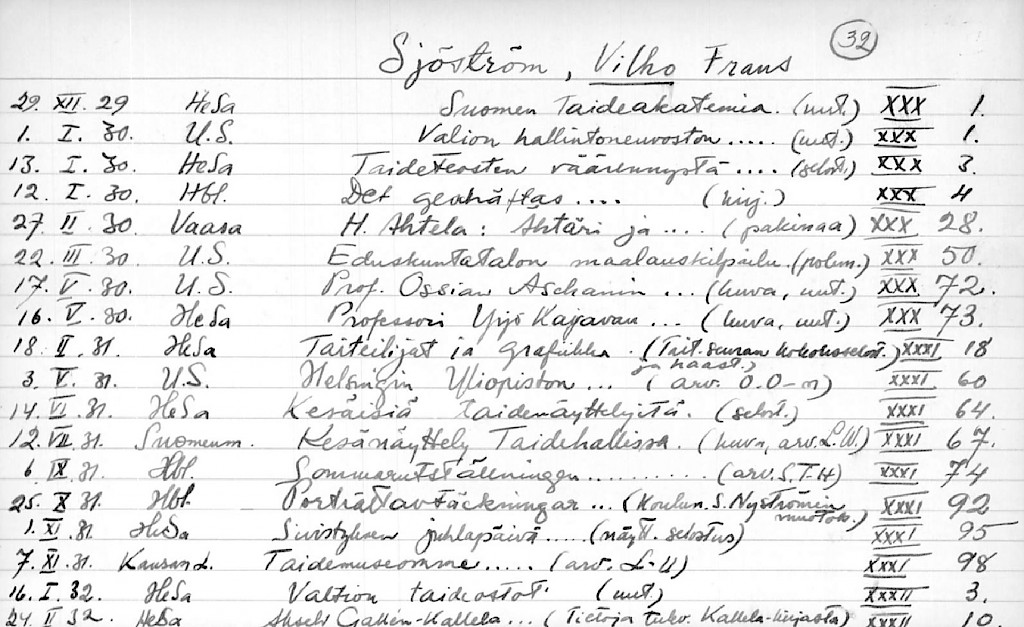 32
Sjöström, Vilho Frans
29. XII. 29 HeSa Suomen Taideakatemia. (uut.) XXX 1.
1. I. 30. U.S. Valion hallintoneuvoston ..... (uut.) XXX 1.
13. I. 30. HeSa Taideteosten väärennystä .... (selost.) XXX 3.
12. I. 30. Hbl. Det .... (kirj.) XXX 4
27. II 30. Vaasa H. Ahtela: Ähtäri ja .... (pakinaa) XXX 28.
22. III. 30. U.S. Eduskuntatalon maalauskilpailu. (polem.) XXX 50.
17. V. 30. U.S. Prof. Ossian Aschanin ... (kuva, uut.) XXX 72.
16. V. 30. HeSa Professori Yrjö Kajavan ... (kuva, uut.) XXX 73.
18. II. 31. HeSa Taiteilijat ja grafiikka. (Tait. seuran kokousselost. ja haast.) XXXI 18
3. V. 31. U.S. Helsingin Yliopiston ... (arv. O.O-n) XXXI 60
14. VI. 31. HeSa Kesäisiä taidenäyttelyitä. (selost.) XXXI 64.
12. VII. 31. Suomenm. Kesänäyttely Taidehallissa. (kuva, arv. L.W.) XXXI 67.
6 IX. 31. Hbl. Sommarutställningen .......... (arv. S.T-H) XXXI 74
25. X 31. Hbl. Porträttavtäckningar ... (Koulun. S. Nyströmin muotok.) XXXI 92
1. XI. 31. HeSa Sivistyksen juhlapäivä ..... (näytt. selostus) XXXI 95
7. XI. 31. Kansan L. Taidemuseomme ..... (arv. L-U) XXXI 98
16. I. 32. HeSa Valtion taideostot (uut.) XXXII 3.
24. II 32. HeSa Akseli Gallén-Kallela ... (Tietoja tulev. Kallela-kirjasta) XXXII 10.